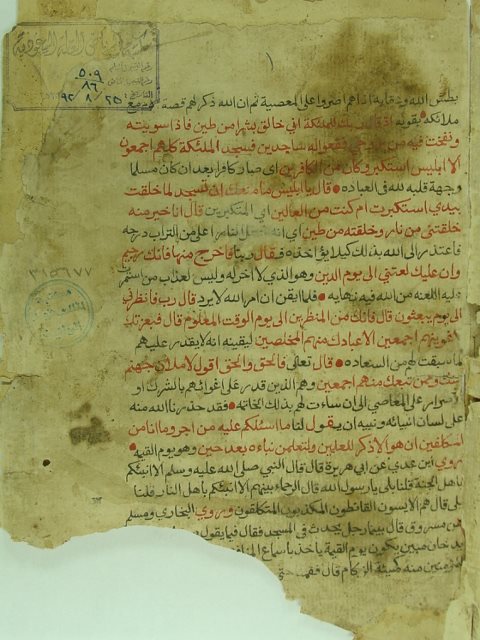 مكتبة الرياض السعودية
٥٠٩
٨٦
٢٥ / ٨ / ٩٢
١
بطش الله وعقابه اذا هم اصروا على المعصية ثم ان الله ذكر لهم قصة مع
ملائكته بقوله اذ قال ربك للملئكة اني خالق بشرا من طين فاذا سويته
ونفخت فيه من روحي فقعوا له ساجدين فسجد الملئكة كلهم اجمعون
الا ابليس استكبر وكان من الكافرين اي صار كافرا بعد ان كان مسلما
وجهة قلبه لله في العباده قال يا ابليس ما منعك ان تسجد لما خلقت
بيدي استكبرت ام كنت من العالين اي المتكبرين قال انا خير منه
خلقتني من نار وخلقته من طين اي انه النار اعلى من التراب درجه
فاعتذر الى الله بذلك كيلا يؤاخذه فقال ربنا فاخرج منها فانك رجيم
وان عليك لعنتي الى يوم الدين وهو الذي لا اخر له وليس لعذاب من استمرت
عليه اللعنه من الله فيه نهايه فلما ايقن ان امر الله لا يرد قال رب فانظرني
الى يوم يبعثون قال فانك من المنظرين الى يوم الوقت المعلوم قال فبعزتك
لاغوينهم اجمعين الا عبادك منهم المخلصين ليقينه انه لا يقدر على هم
لما سبقت لهم من السعاده قال تعالى فالحق والحق اقول لاملان جهنم
منك وممن تبعك منهم اجمعين وهم الذين قدر على اغوائهم بالشرك او
الاصرار على المعاصي الى ان ساءت لهم بذلك الخاتمه فقد حذرنا الله منه
على لسان انبيائه ونبيه ان يقول لنا ما اسئلكم عليه من اجر وما انا من
المتكلفين ان هو الا ذكر للعلمين ولتعلمن نباءه بعد حين وهو يوم القيمه
روي ابن عدي عن ابي هريرة قال قال النبي صلى الله عليه وسلم الا انبئكم
باهل الجنة قلنا بلى يا رسول الله قال الرحماء بينهم الا انبئكم بأهل النار قلنا
بلى قال هم الايسون القانطون المكذبون المتكلفون وروي البخاري ومسلم
عن مسروق قال بينما رجل يحدث في المسجد فقال فيما يقول
دخان مبين يكون يوم القيمة ياخذ باسماع
المؤمنين منه كهيئة الزكام قال
٣١٥٦٧٧